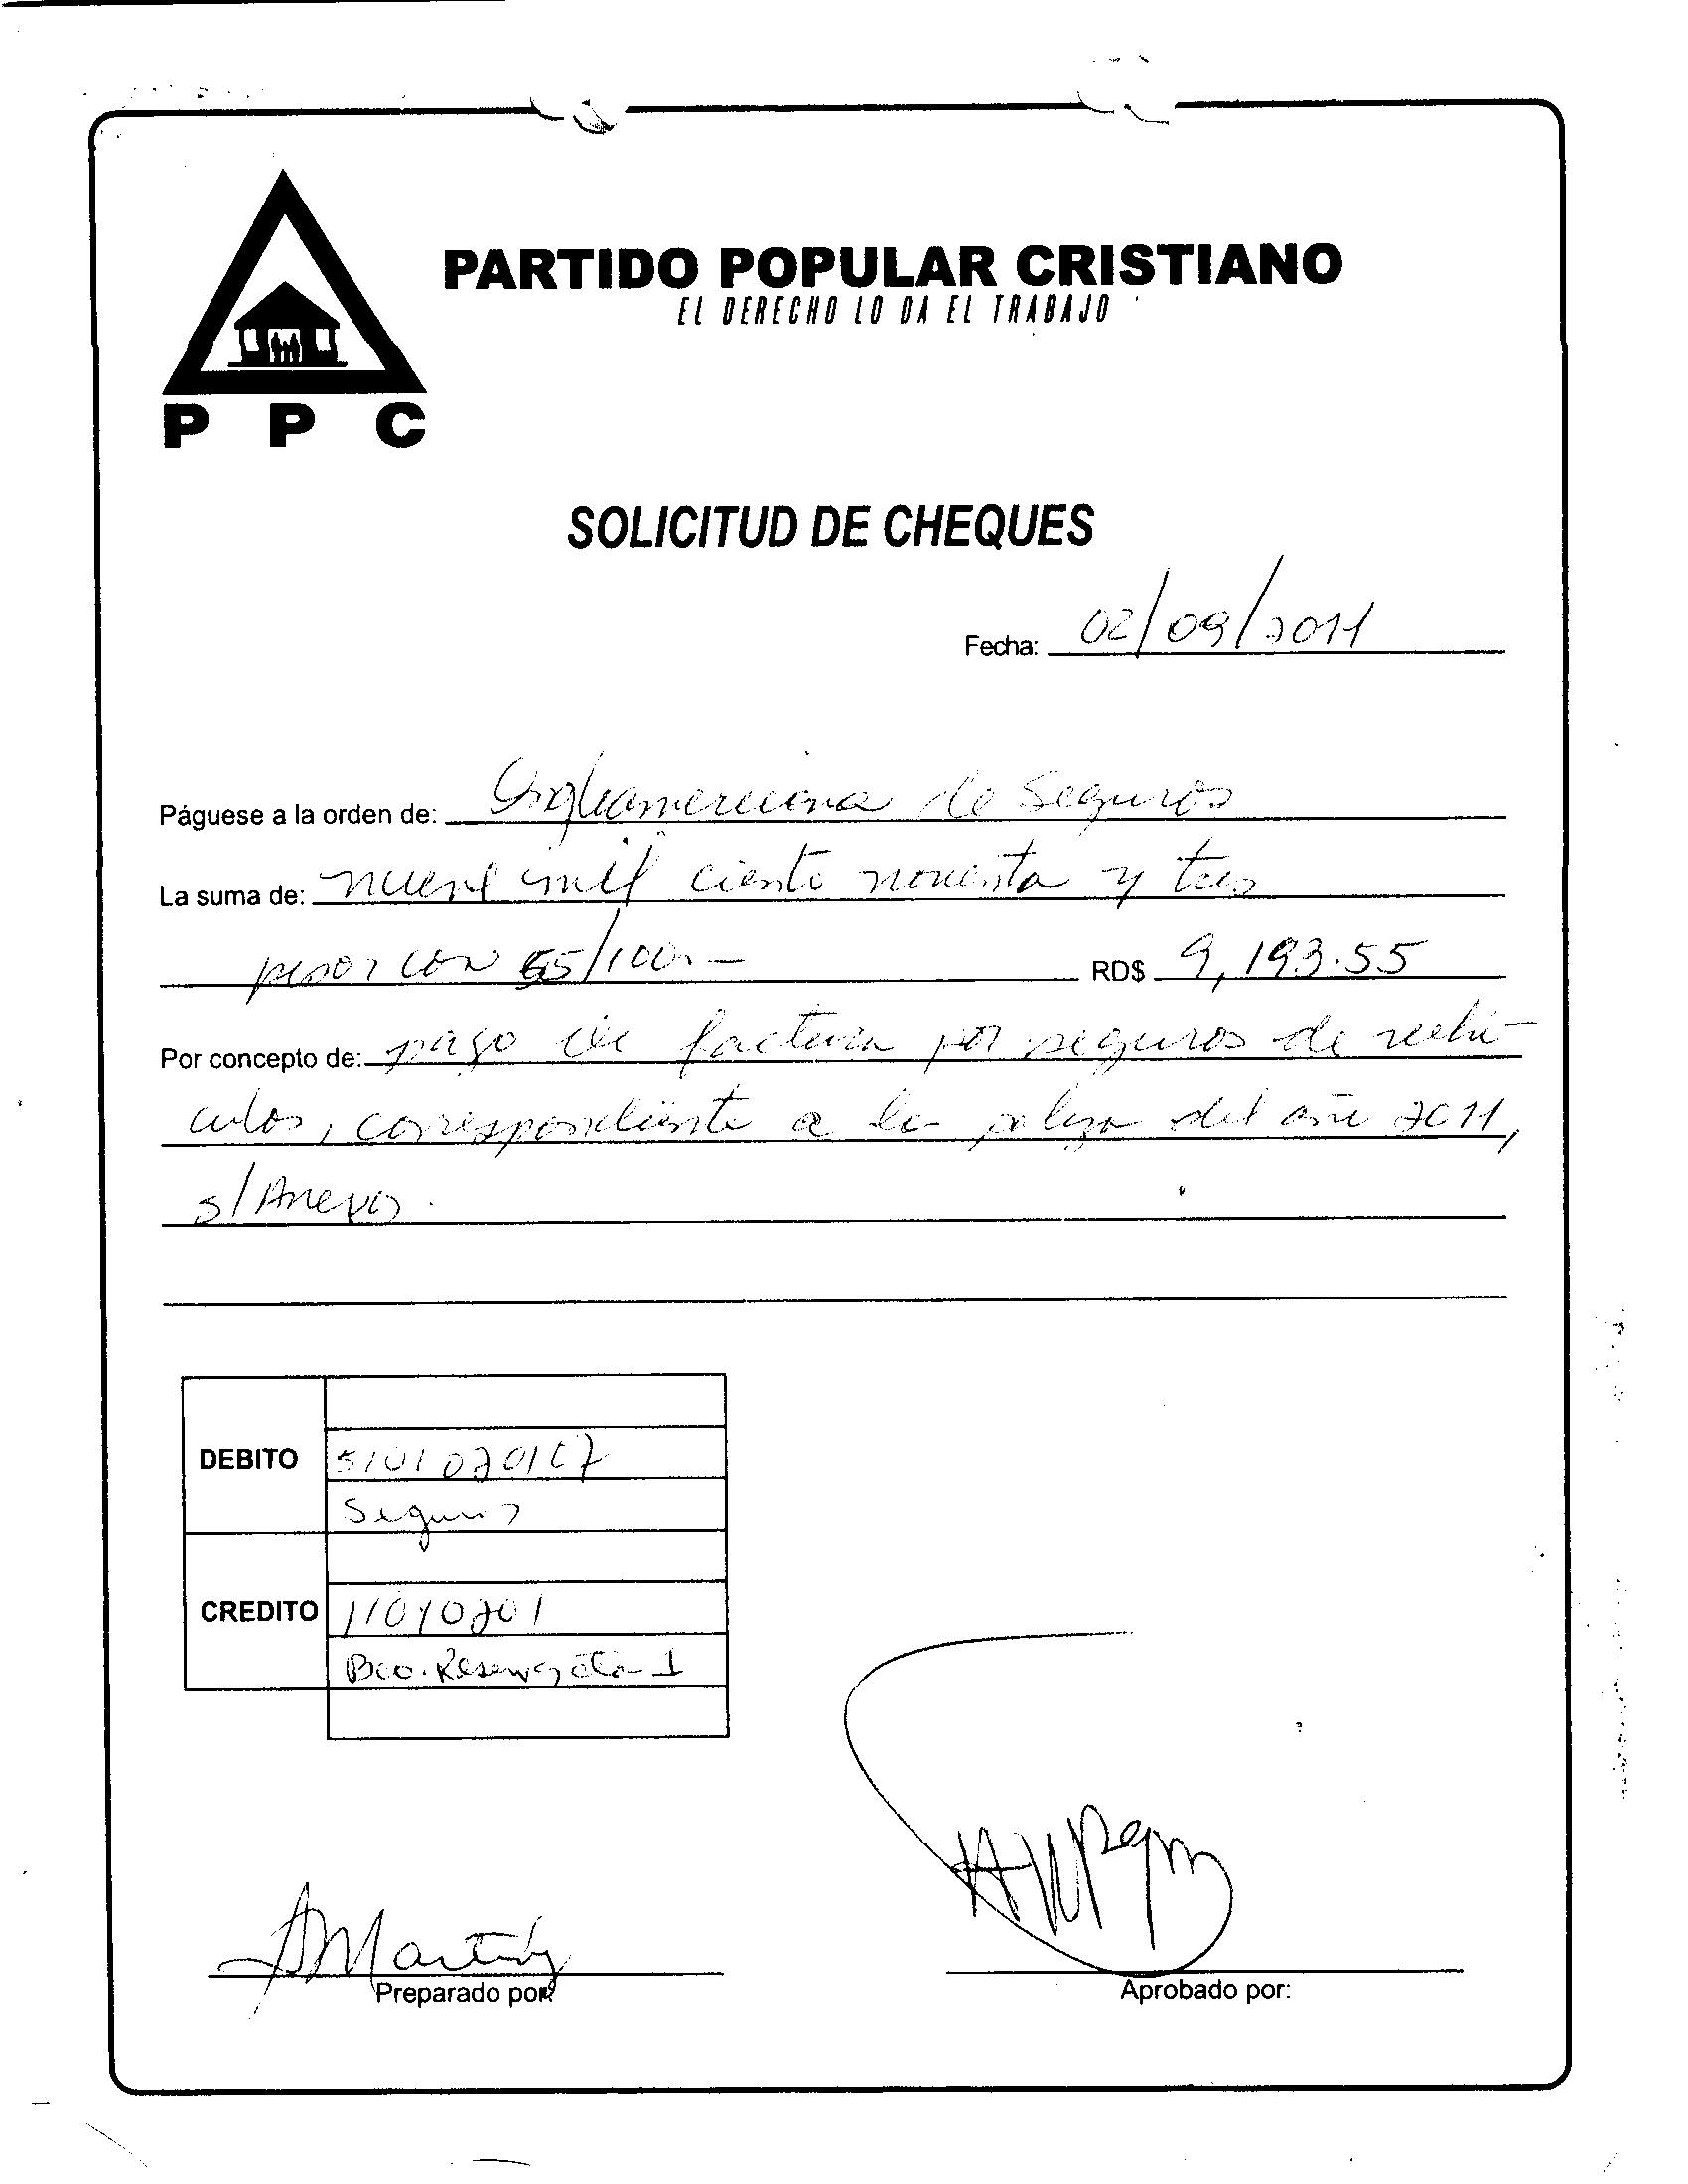 PARTIDO POPULAR CRISTIANO
EL DERECHO LO DA EL TRABAJO
P P C
SOLICITUD DE CHEQUES
Fecha: 02/09/2011
Páguese a la orden de: Angloamericana de Seguros
La suma de: nueve mil ciento noventa y tres
pesos con 55/100.- RD$ 9,193.55
Por concepto de: pago de factura por seguros de vehí-
culos, correspondiente a la poliza del año 2011,
s/Anexos.
DEBITO 5101020107
Seguros
CREDITO 11010201
Bco. Reservas cta-1
AMartínez
Preparado por:
Aprobado por: